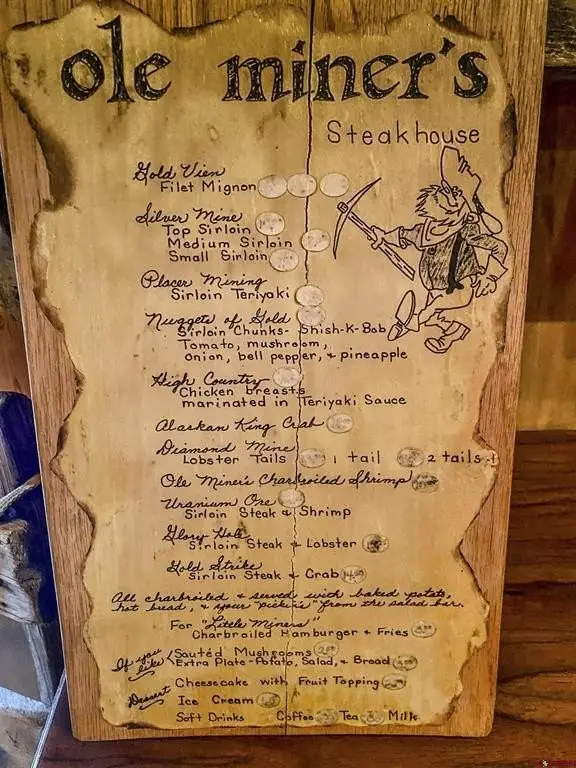 ole miner's
Steakhouse
Gold Vien
Filet Mignon
Silver Mine
Top Sirloin
Medium Sirloin
Small Sirloin
Placer Mining
Sirloin Teriyaki
Nuggets of Gold
Sirloin Chunks- Shish-K-Bob
Tomato, mushroom,
onion, bell pepper, & pineapple
High Country
Chicken breasts
marinated in Teriyaki Sauce
Alaskan King Crab
Diamond Mine
Lobster Tails 1 tail 2 tails
Ole Miner's Charbroiled Shrimp
Uranium Ore
Sirloin Steak & Shrimp
Glory Hole
Sirloin Steak & Lobster
Gold Strike
Sirloin Steak & Crab
All charbroiled & served with baked potato,
hot bread, & your "pickins" from the salad bar.
For "Little Miners"
Charbroiled Hamburger & Fries
If you like
Sautéd Mushrooms
Extra Plate-Potato, Salad, & Bread
Cheesecake with Fruit Topping
Dessert
Ice Cream
Soft Drinks Coffee Tea Milk